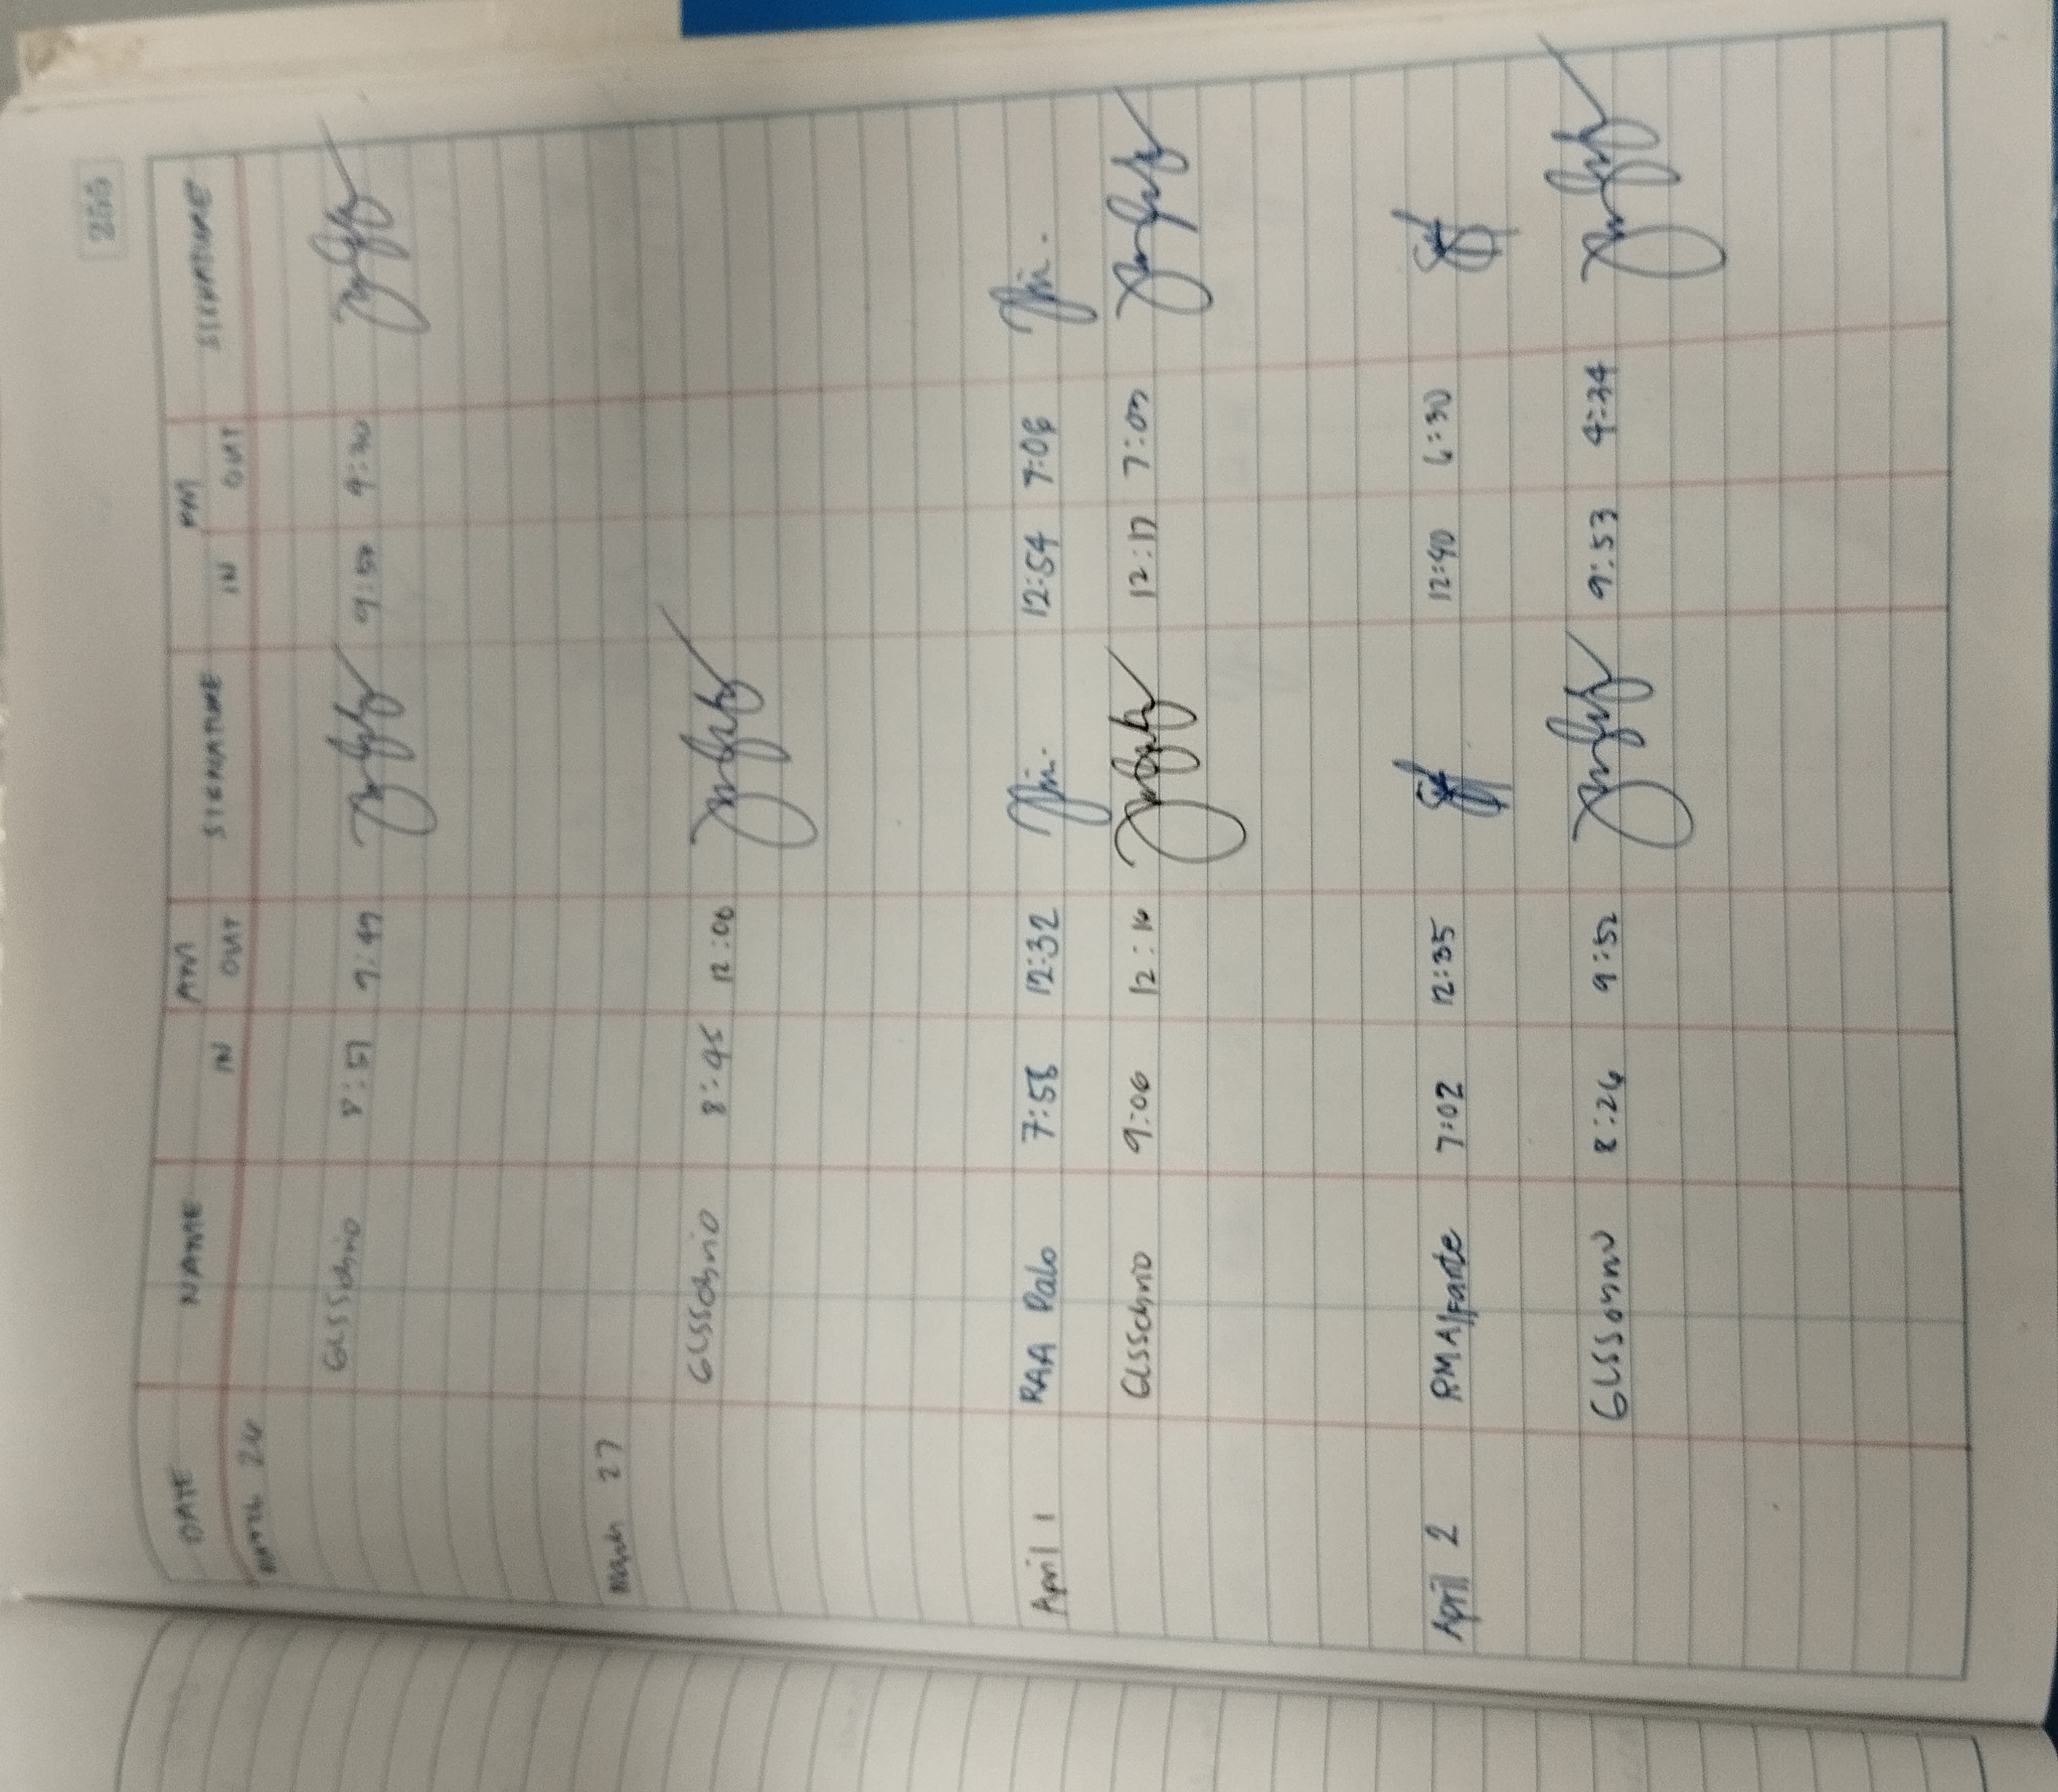 255
DATE NAME AM SIGNATURE PM SIGNATURE
IN OUT IN OUT
March 26
GLSSorino 8:51 9:49 9:50 4:30
March 27
GLSSorino 8:45 12:06
April 1 RAA Palo 7:58 12:32 12:54 7:06
GLSSorino 9:06 12:16 12:17 7:03
April 2 RMAlfante 7:02 12:35 12:40 6:30
GLSSorino 8:26 9:52 9:53 4:34